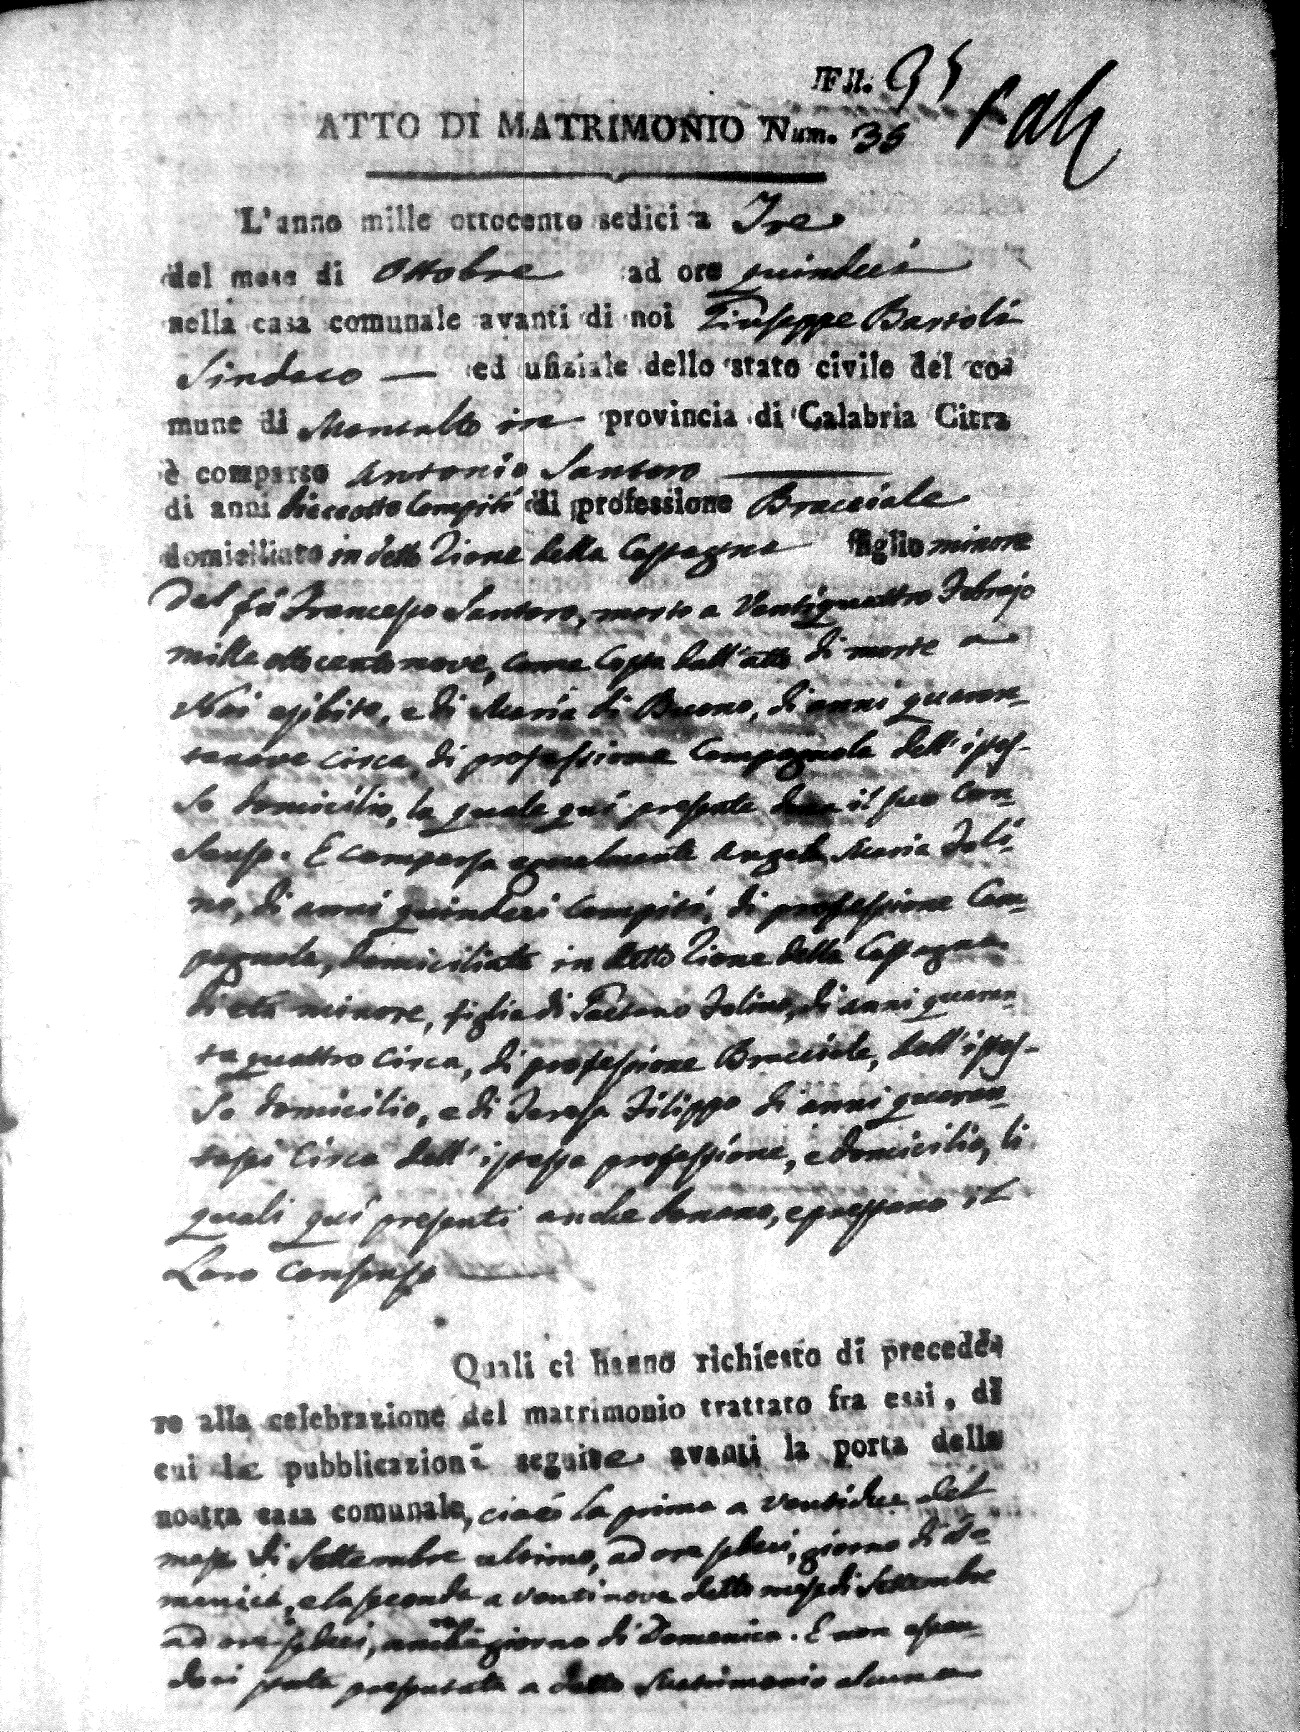 Fll. 95
ATTO DI MATRIMONIO Num. 36
L'anno mille ottocento sedici a Tre
del mese di Ottobre ad ore quindeci
nella casa comunale avanti di noi Giuseppe Bartoli
Sindaco — ed ufiziale dello stato civile del co-
mune di Montalto in provincia di Calabria Citra
è comparso Antonio Santoro
di anni dieciotto compiti di professione Bracciale
domiciliato in detto Rione della Cassagna figlio minore
del fù Francesco Santoro, morto a Ventiquattro Febrajo
mille ottocento nove, come costa dall'atto di morte a
Noi esibito, e di Maria di Buono, di anni quaran-
tanove circa, di professione Campagnola dell'istes-
so domicilio, la quale quì presente dona il suo con-
senso. E comparsa egualmente Angela Maria Foli-
no, di anni quindeci compiti, di professione Cam-
pagnola, domiciliata in detto Rione della Cassagna
di età minore, figlia di Gaetano Folino, di anni quaran-
ta quattro circa, di professione Bracciale, dell'istes-
so domicilio, e di Teresa Filippo di anni quaran-
tasei circa dell'istessa professione, e domicilio, li
quali quì presenti anche donano, e prestano il
Loro consenso
Quali ci hanno richiesto di precede-
re alla celebrazione del matrimonio trattato fra essi, di
cui le pubblicazioni seguite avanti la porta della
nostra casa comunale, cioè la prima a ventidue del
mese di Settembre ultimo, ad ore sedeci, giorno di Do-
menica, e la seconda a ventinove detto mese di Settembre
ad ore sedeci, anche giorno di Domenica. E non essen-
doci stata presentata a detto Matrimonio alcuna